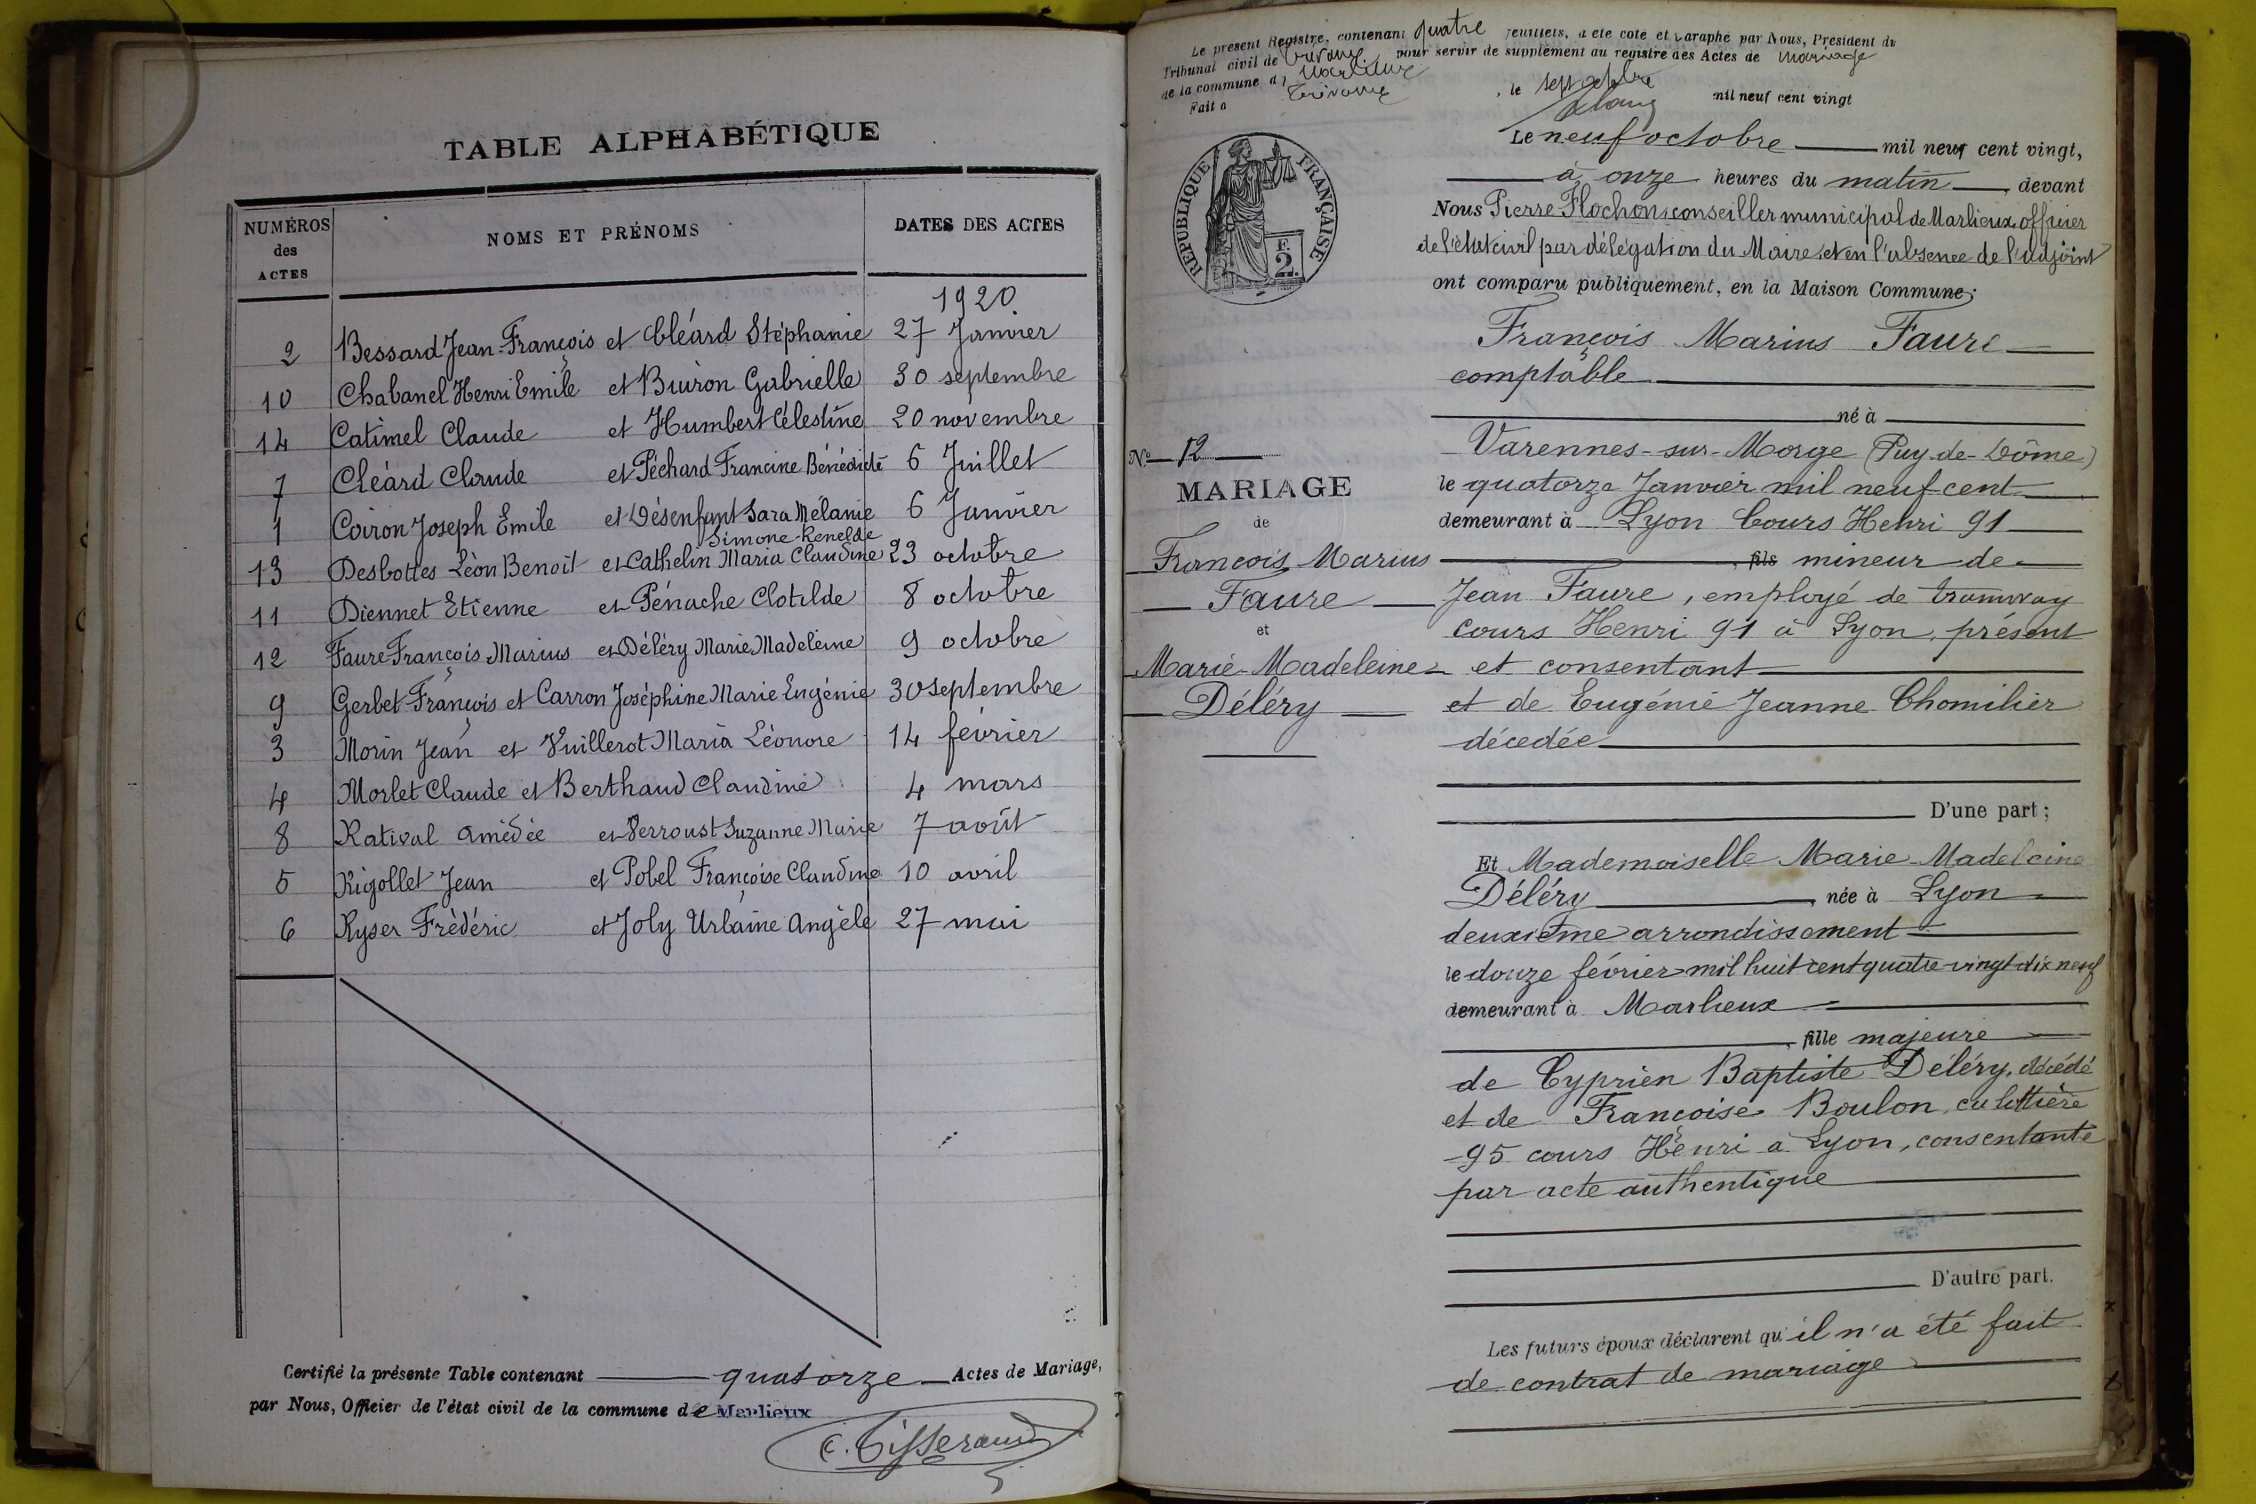 TABLE ALPHABÉTIQUE
NUMÉROS des ACTES
NOMS ET PRÉNOMS
DATES DES ACTES
1920
2 Bessard Jean-François et Cléard Stéphanie 27 Janvier
10 Chabanel Henri Emile et Buiron Gabrielle 30 septembre
14 Catimel Claude et Humbert Célestine 20 novembre
7 Cléard Claude et Péchard Francine Bénédicte 6 Juillet
1 Coiron Joseph Emile et Désenfant Sara Mélanie 6 Janvier
Simone Renelde
13 Desbottes Léon Benoit et Cathelin Maria Claudine 23 octobre
11 Diennet Etienne et Pénache Clotilde 8 octobre
12 Faure François Marius et Déléry Marie Madeleine 9 octobre
9 Gerbet François et Carron Joséphine Marie Eugénie 30 septembre
3 Morin Jean et Vuillerot Maria Léonore 14 février
4 Morlet Claude et Berthaud Claudine 4 mars
8 Rativat Amédée et Verroust Suzanne Marie 7 août
5 Rigollet Jean et Pobel Françoise Claudine 10 avril
6 Ryser Frédéric et Joly Urbaine Angèle 27 mai
Certifié la présente Table contenant quatorze Actes de Mariage,
par Nous, Officier de l'état civil de la commune de Marlieux
C. Tisserand
Le présent Registre, contenant quatre feuillets, a été coté et paraphé par Nous, Président du
Tribunal civil de Trévoux pour servir de supplément au registre des Actes de Mariage
de la commune de Marlieux
Fait à Trévoux, le sept octobre mil neuf cent vingt
RÉPUBLIQUE FRANÇAISE
F.
2.
Le neuf octobre mil neuf cent vingt,
à onze heures du matin, devant
Nous Pierre Flochon, conseiller municipal de Marlieux, officier
de l'état civil par délégation du Maire, et en l'absence de l'adjoint
ont comparu publiquement, en la Maison Commune;
François Marius Faure
comptable
né à
Varennes-sur-Morge (Puy-de-Dôme)
le quatorze Janvier mil neuf cent
demeurant à Lyon Cours Henri 91
fils mineur de
Jean Faure, employé de tramway
cours Henri 91 à Lyon, présent
et consentant
et de Eugénie Jeanne Chomilier
décédée
D'une part;
N° 12
MARIAGE
de
François Marius
Faure
et
Marie-Madeleine
Déléry
Et Mademoiselle Marie-Madeleine
Déléry, née à Lyon
deuxième arrondissement
le douze février mil huit cent quatre-vingt dix neuf
demeurant à Marlieux
, fille majeure
de Cyprien Baptiste Déléry, décédé
et de Françoise Boulon, culottière
95 cours Henri à Lyon, consentante
par acte authentique
D'autre part.
Les futurs époux déclarent qu'il n'a été fait
de contrat de mariage